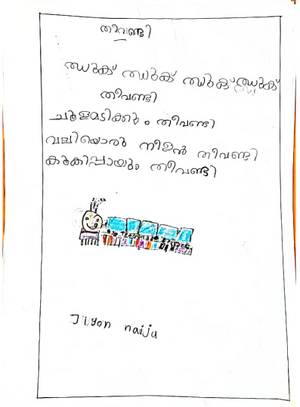 തീവണ്ടി
ഝുക് ഝുക് ഝുക് ഝുക്
തീവണ്ടി
ചൂളമടിക്കും തീവണ്ടി
വലിയൊരു നീളൻ തീവണ്ടി
കൂകിപ്പായും തീവണ്ടി
Jiyon naiju